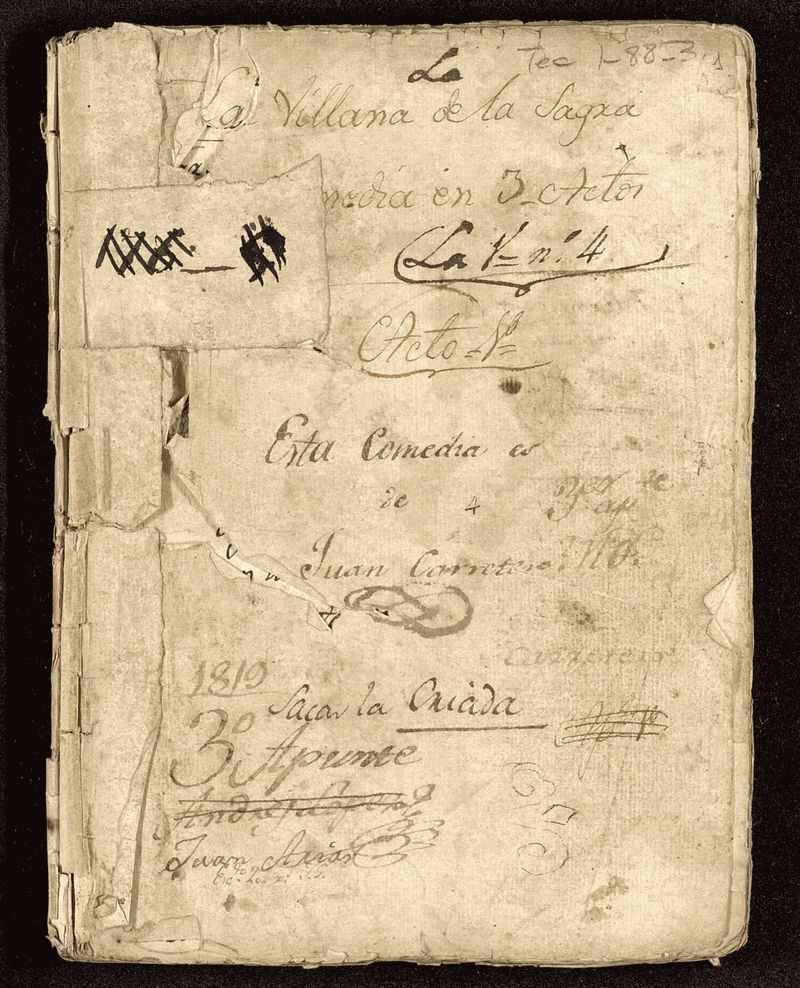 La
Tea 1-88-3,
La Villana de la Sagra
media en 3 Actos
La 1ª nº 4
Acto 1º
Esta Comedia es
de 4
Juan Carretero
Carretero
1819
Sacar la Criada
3º Apunte
Juan Arias